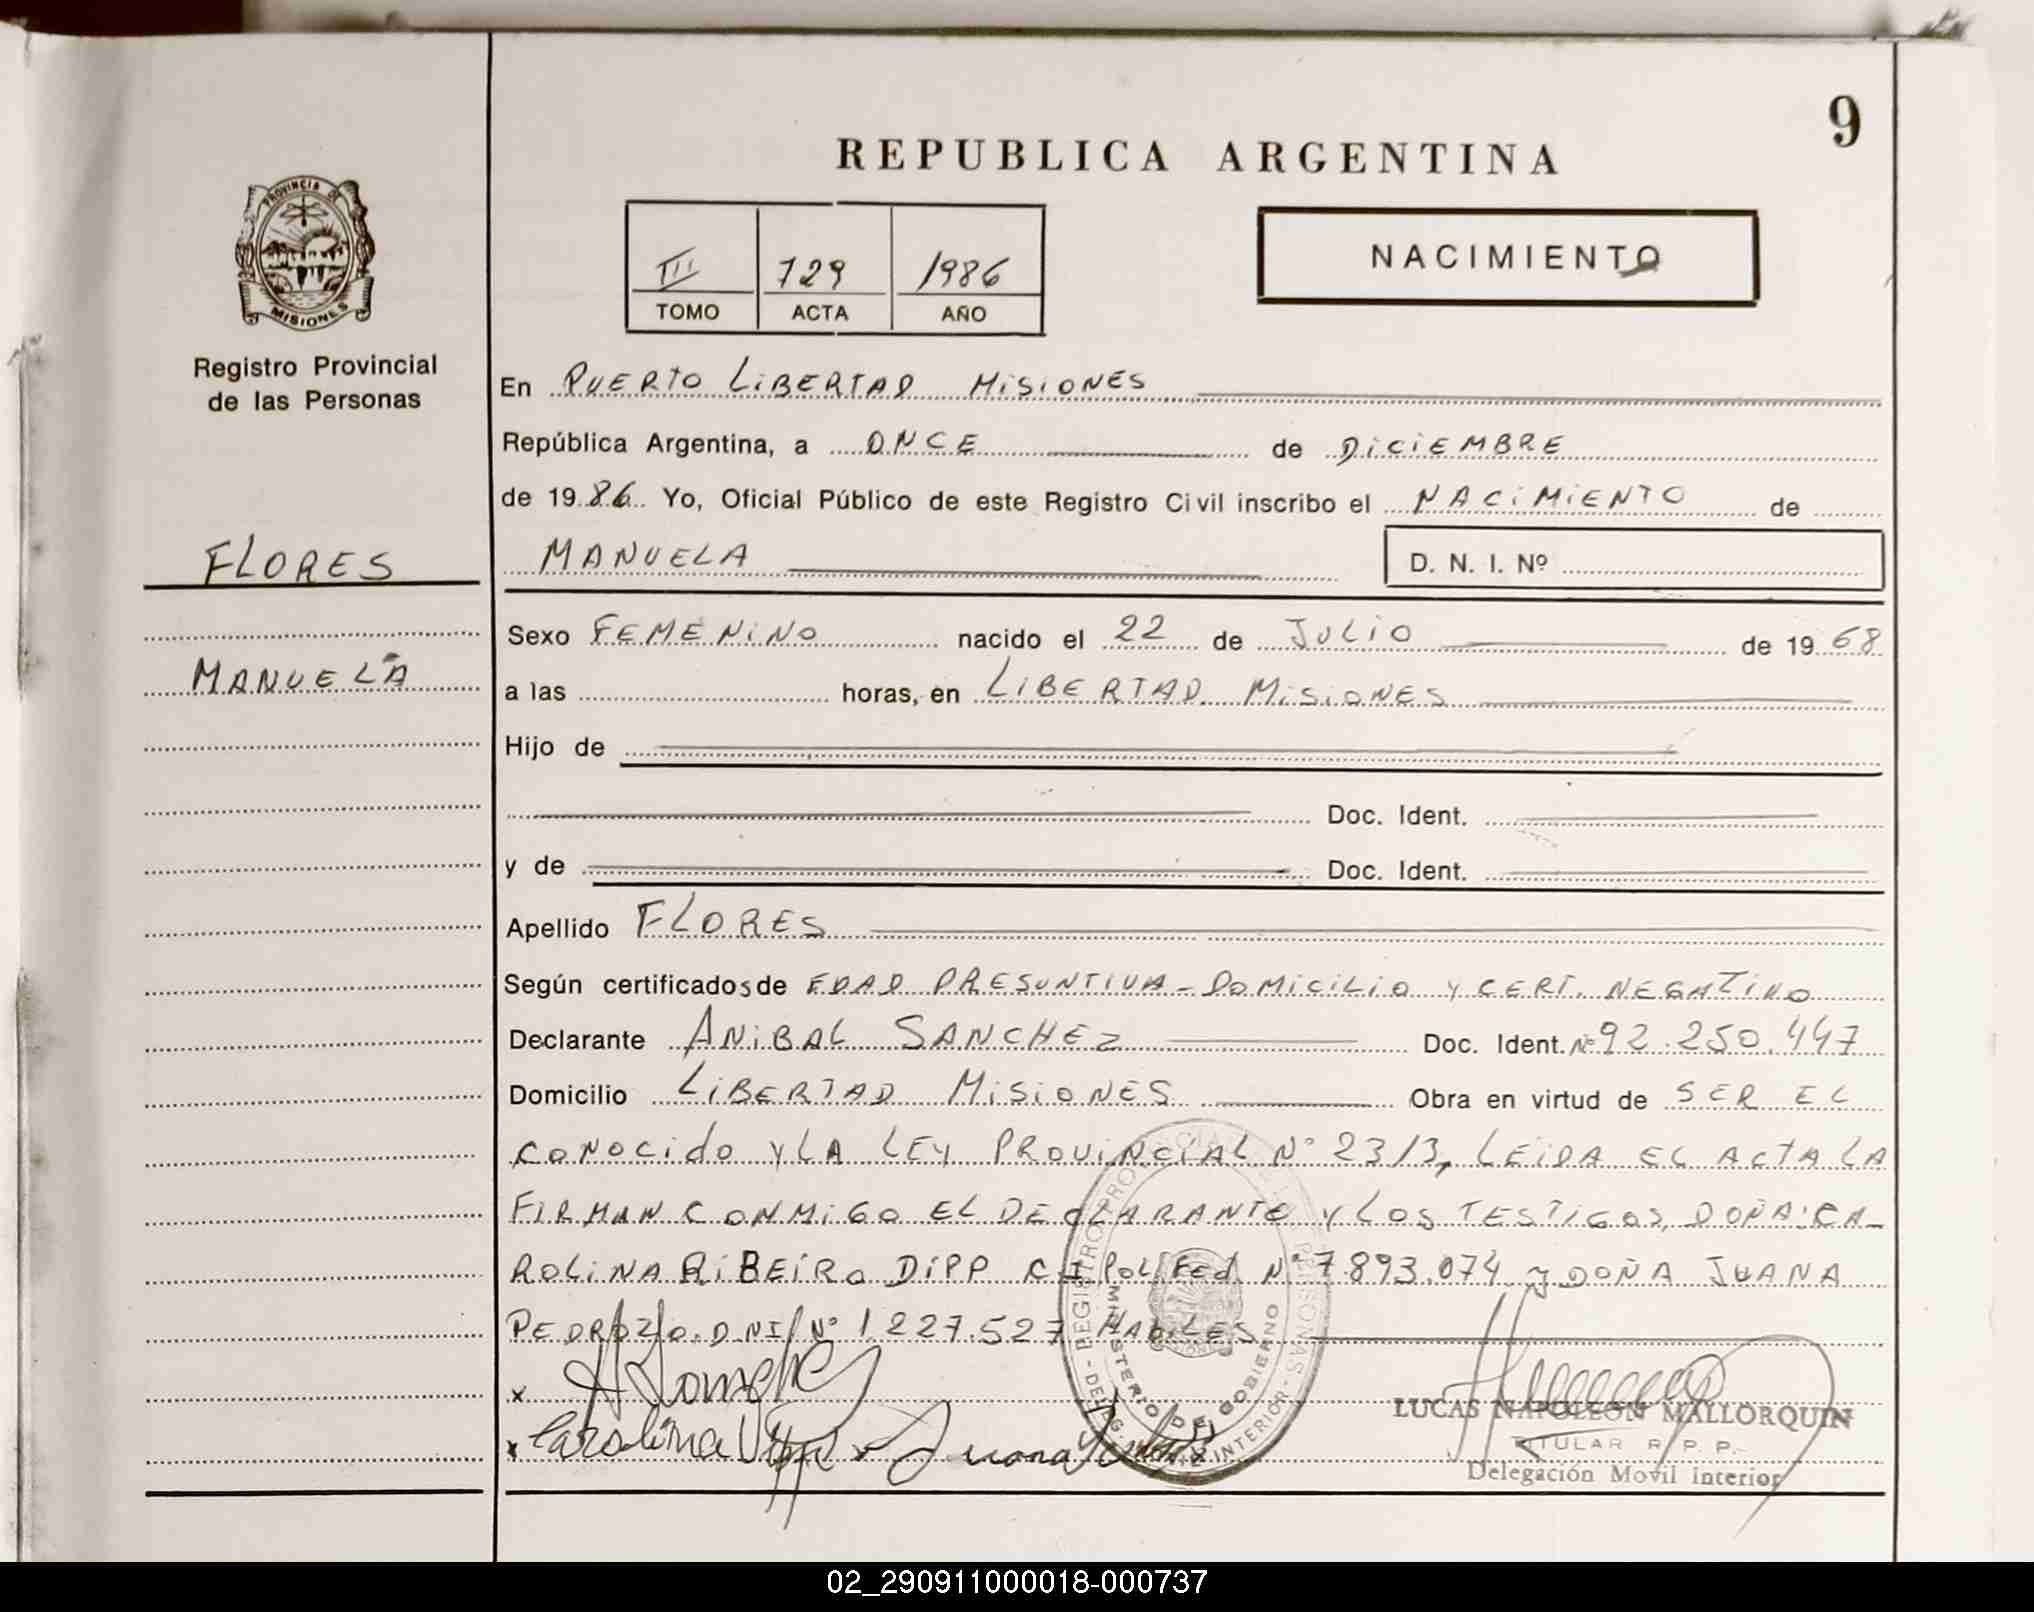 9
REPUBLICA ARGENTINA
PROVINCIA DE
MISIONES
III 729 1986
TOMO ACTA AÑO
NACIMIENTO
Registro Provincial
de las Personas
FLORES
MANUELA
En PUERTO LIBERTAD MISIONES
República Argentina, a ONCE de DICIEMBRE
de 1986 Yo, Oficial Público de este Registro Civil inscribo el NACIMIENTO de
MANUELA D. N. I. Nº
Sexo FEMENINO nacido el 22 de JULIO de 1968
a las horas, en LIBERTAD MISIONES
Hijo de
Doc. Ident.
y de Doc. Ident.
Apellido FLORES
Según certificados de EDAD PRESUNTIVA - DOMICILIO Y CERT. NEGATIVO
Declarante ANIBAL SANCHEZ Doc. Ident. Nº 92.250.447
Domicilio LIBERTAD MISIONES Obra en virtud de SER EL
CONOCIDO Y LA LEY PROVINCIAL Nº 2313, LEIDA EL ACTA LA
FIRMAN CONMIGO EL DECLARANTE Y LOS TESTIGOS, DOÑA: CA-
ROLINA RIBEIRO DIPP C.I. POL FEd Nº 7.893.074 y DOÑA JUANA
PEDROZO. DNI Nº 1.227.527 HABILES
x
x Carolina x Juana
REGISTRO PROVINCIAL DE LAS PERSONAS
MINISTERIO DE GOBIERNO
LUCAS NAPOLEON MALLORQUIN
TITULAR R. P. P.
Delegación Movil Interior
02_290911000018-000737